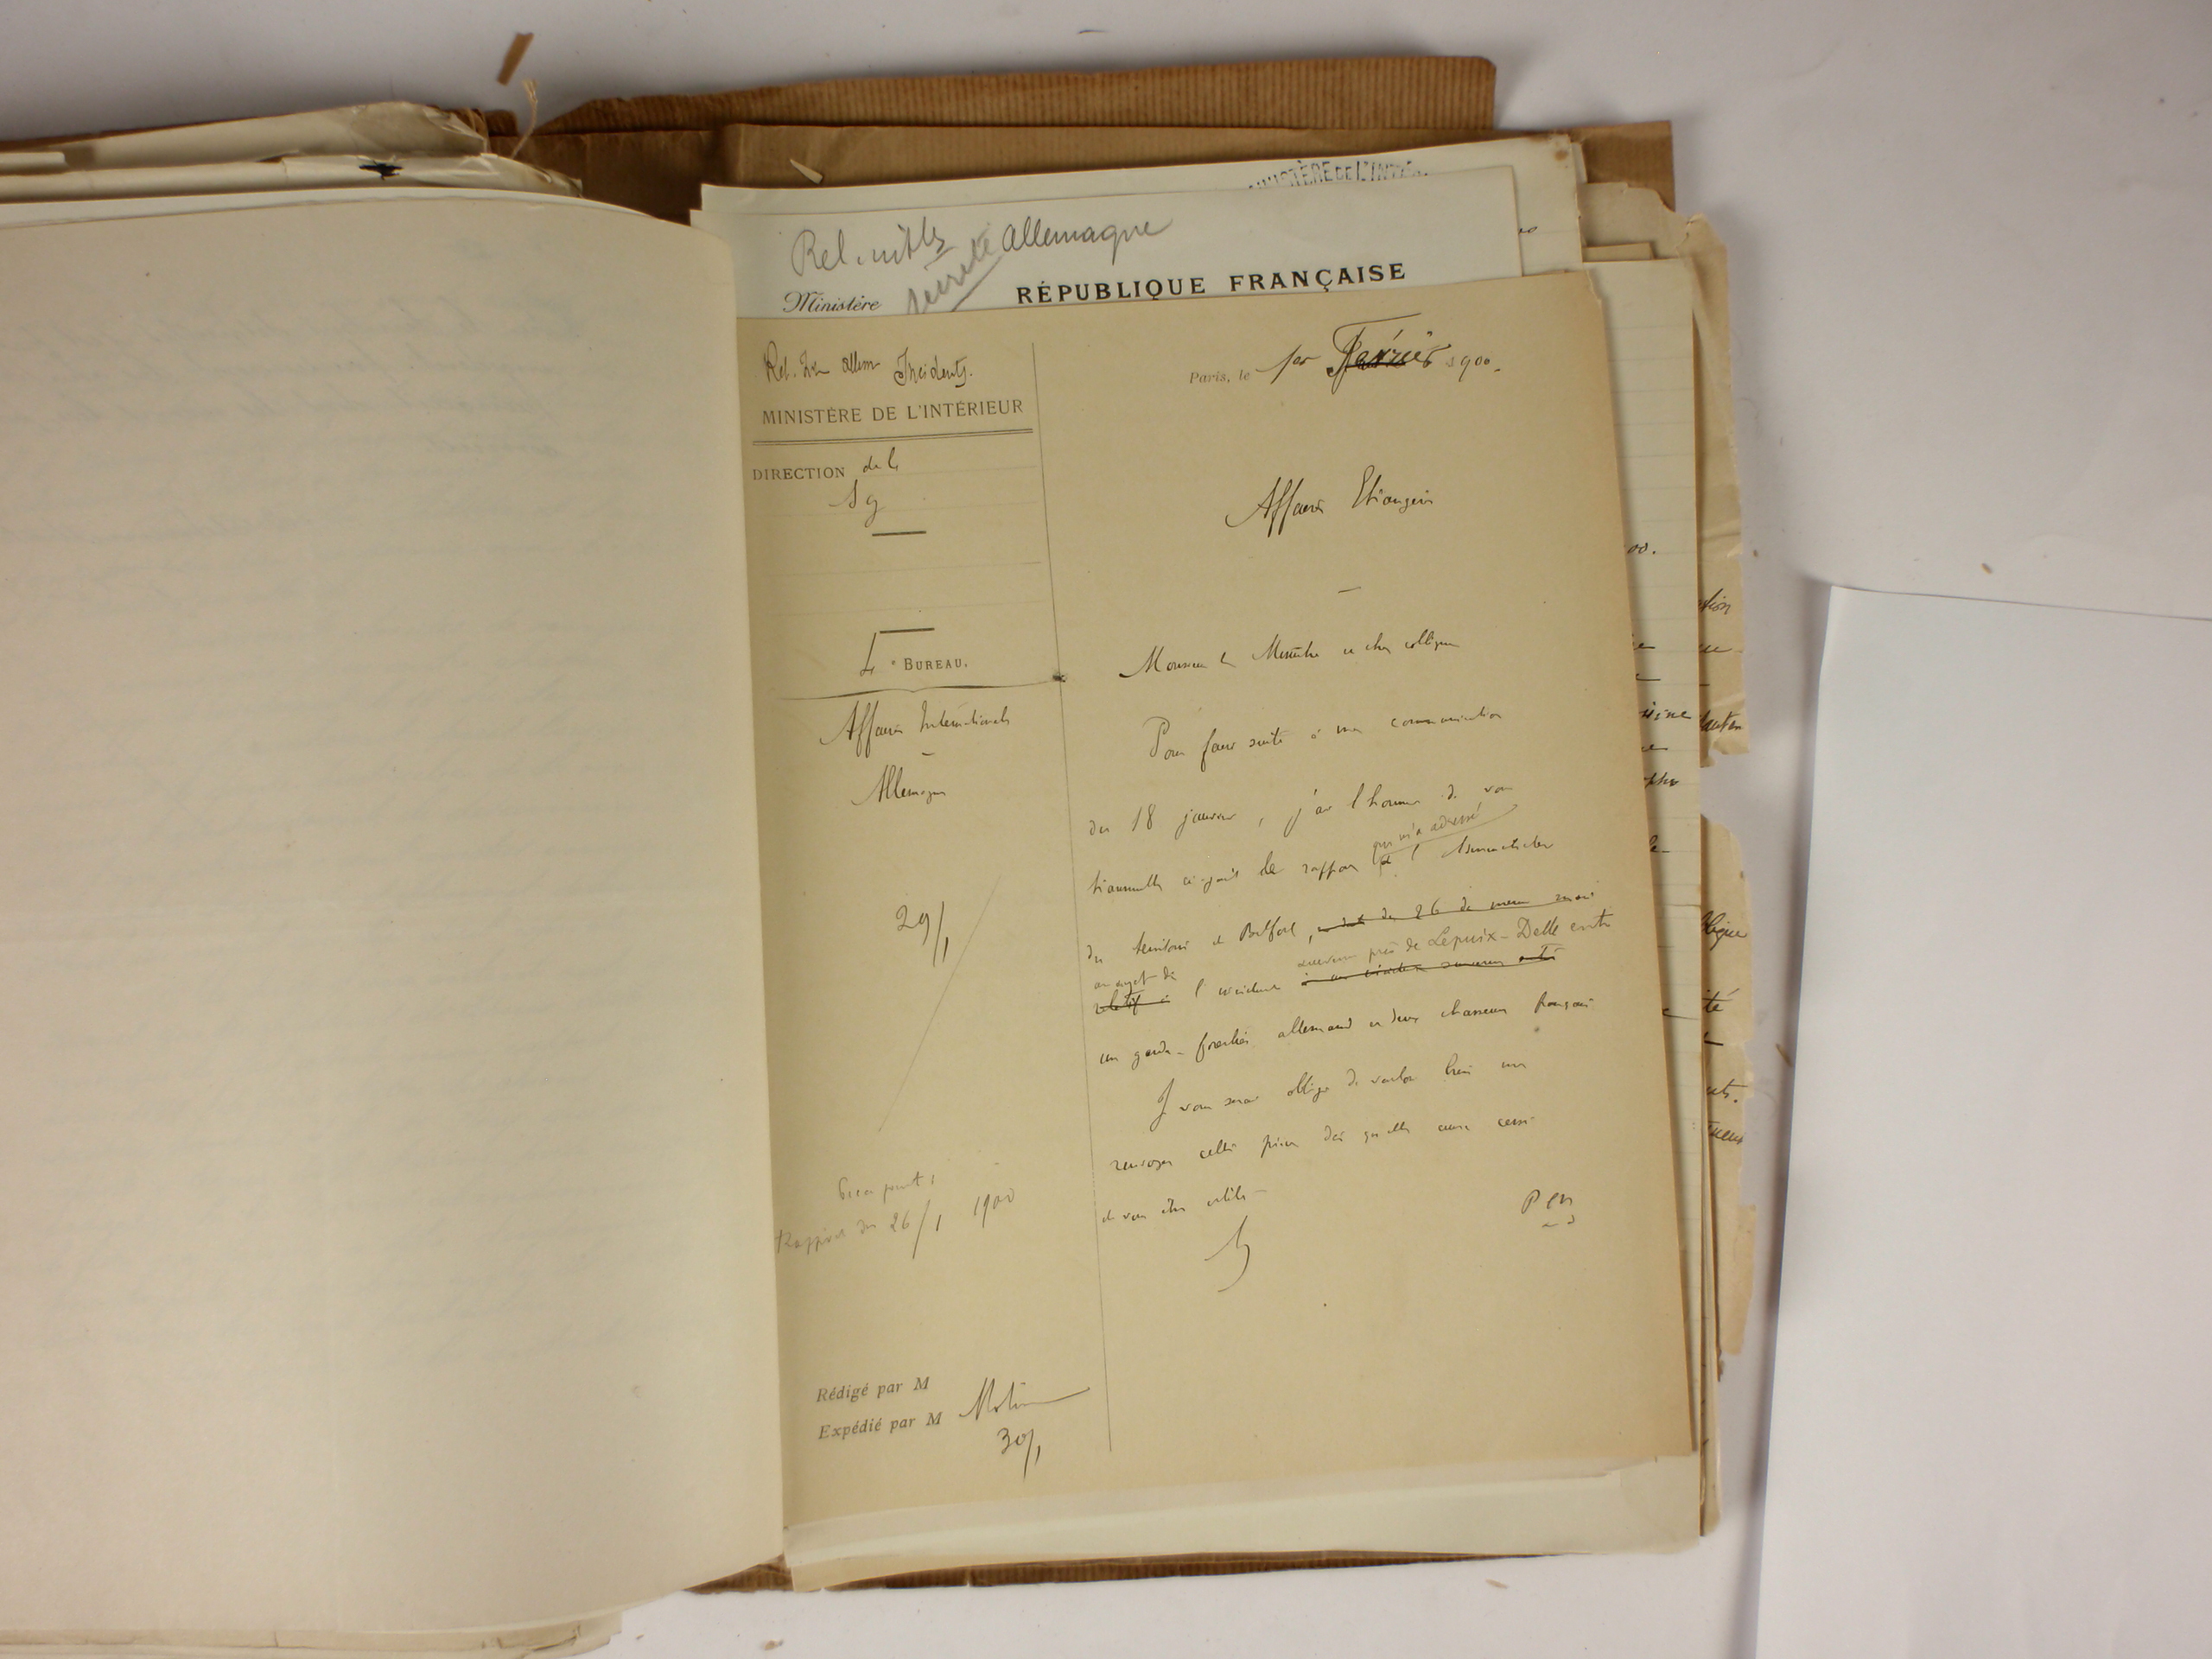 MINISTÈRE DE L'INTÉR
Allemagne
Ministère
RÉPUBLIQUE FRANÇAISE
Rel. Incidents.
MINISTÈRE DE L'INTÉRIEUR
DIRECTION de la
Sg
4e BUREAU.
Affaires Internationales
Allemagne
29/1
Rapport du 26/1 1900
Rédigé par M
Expédié par M
30/1
Paris, le 1er Février 1900.
Affaires Etrangères
Monsieur le Ministre et cher collègue
Pour faire suite à ma communication
du 18 janvier, j'ai l'honneur de vous
qui m'a adressé
transmettre ci-joint le rapport de l'Administrateur
du territoire de Belfort, en date du 26 du même mois
survenu près de Lepuix-Delle entre
au sujet de
relatif à l'incident
un garde-forestier allemand et deux chasseurs français
Je vous serai obligé de vouloir bien me
renvoyer cette pièce dès qu'elle aura cessé
de vous être utile